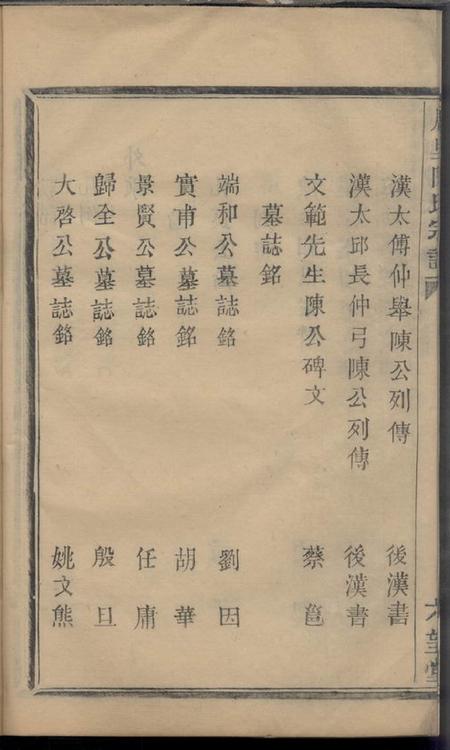 漢太傅仲舉陳公列傳 後漢書
漢太邱長仲弓陳公列傳 後漢書
文範先生陳公碑文 蔡邕
墓誌銘
端和公墓誌銘 劉因
實甫公墓誌銘 胡華
景賢公墓誌銘 任庸
歸全公墓誌銘 殷旦
大啓公墓誌銘 姚文熊